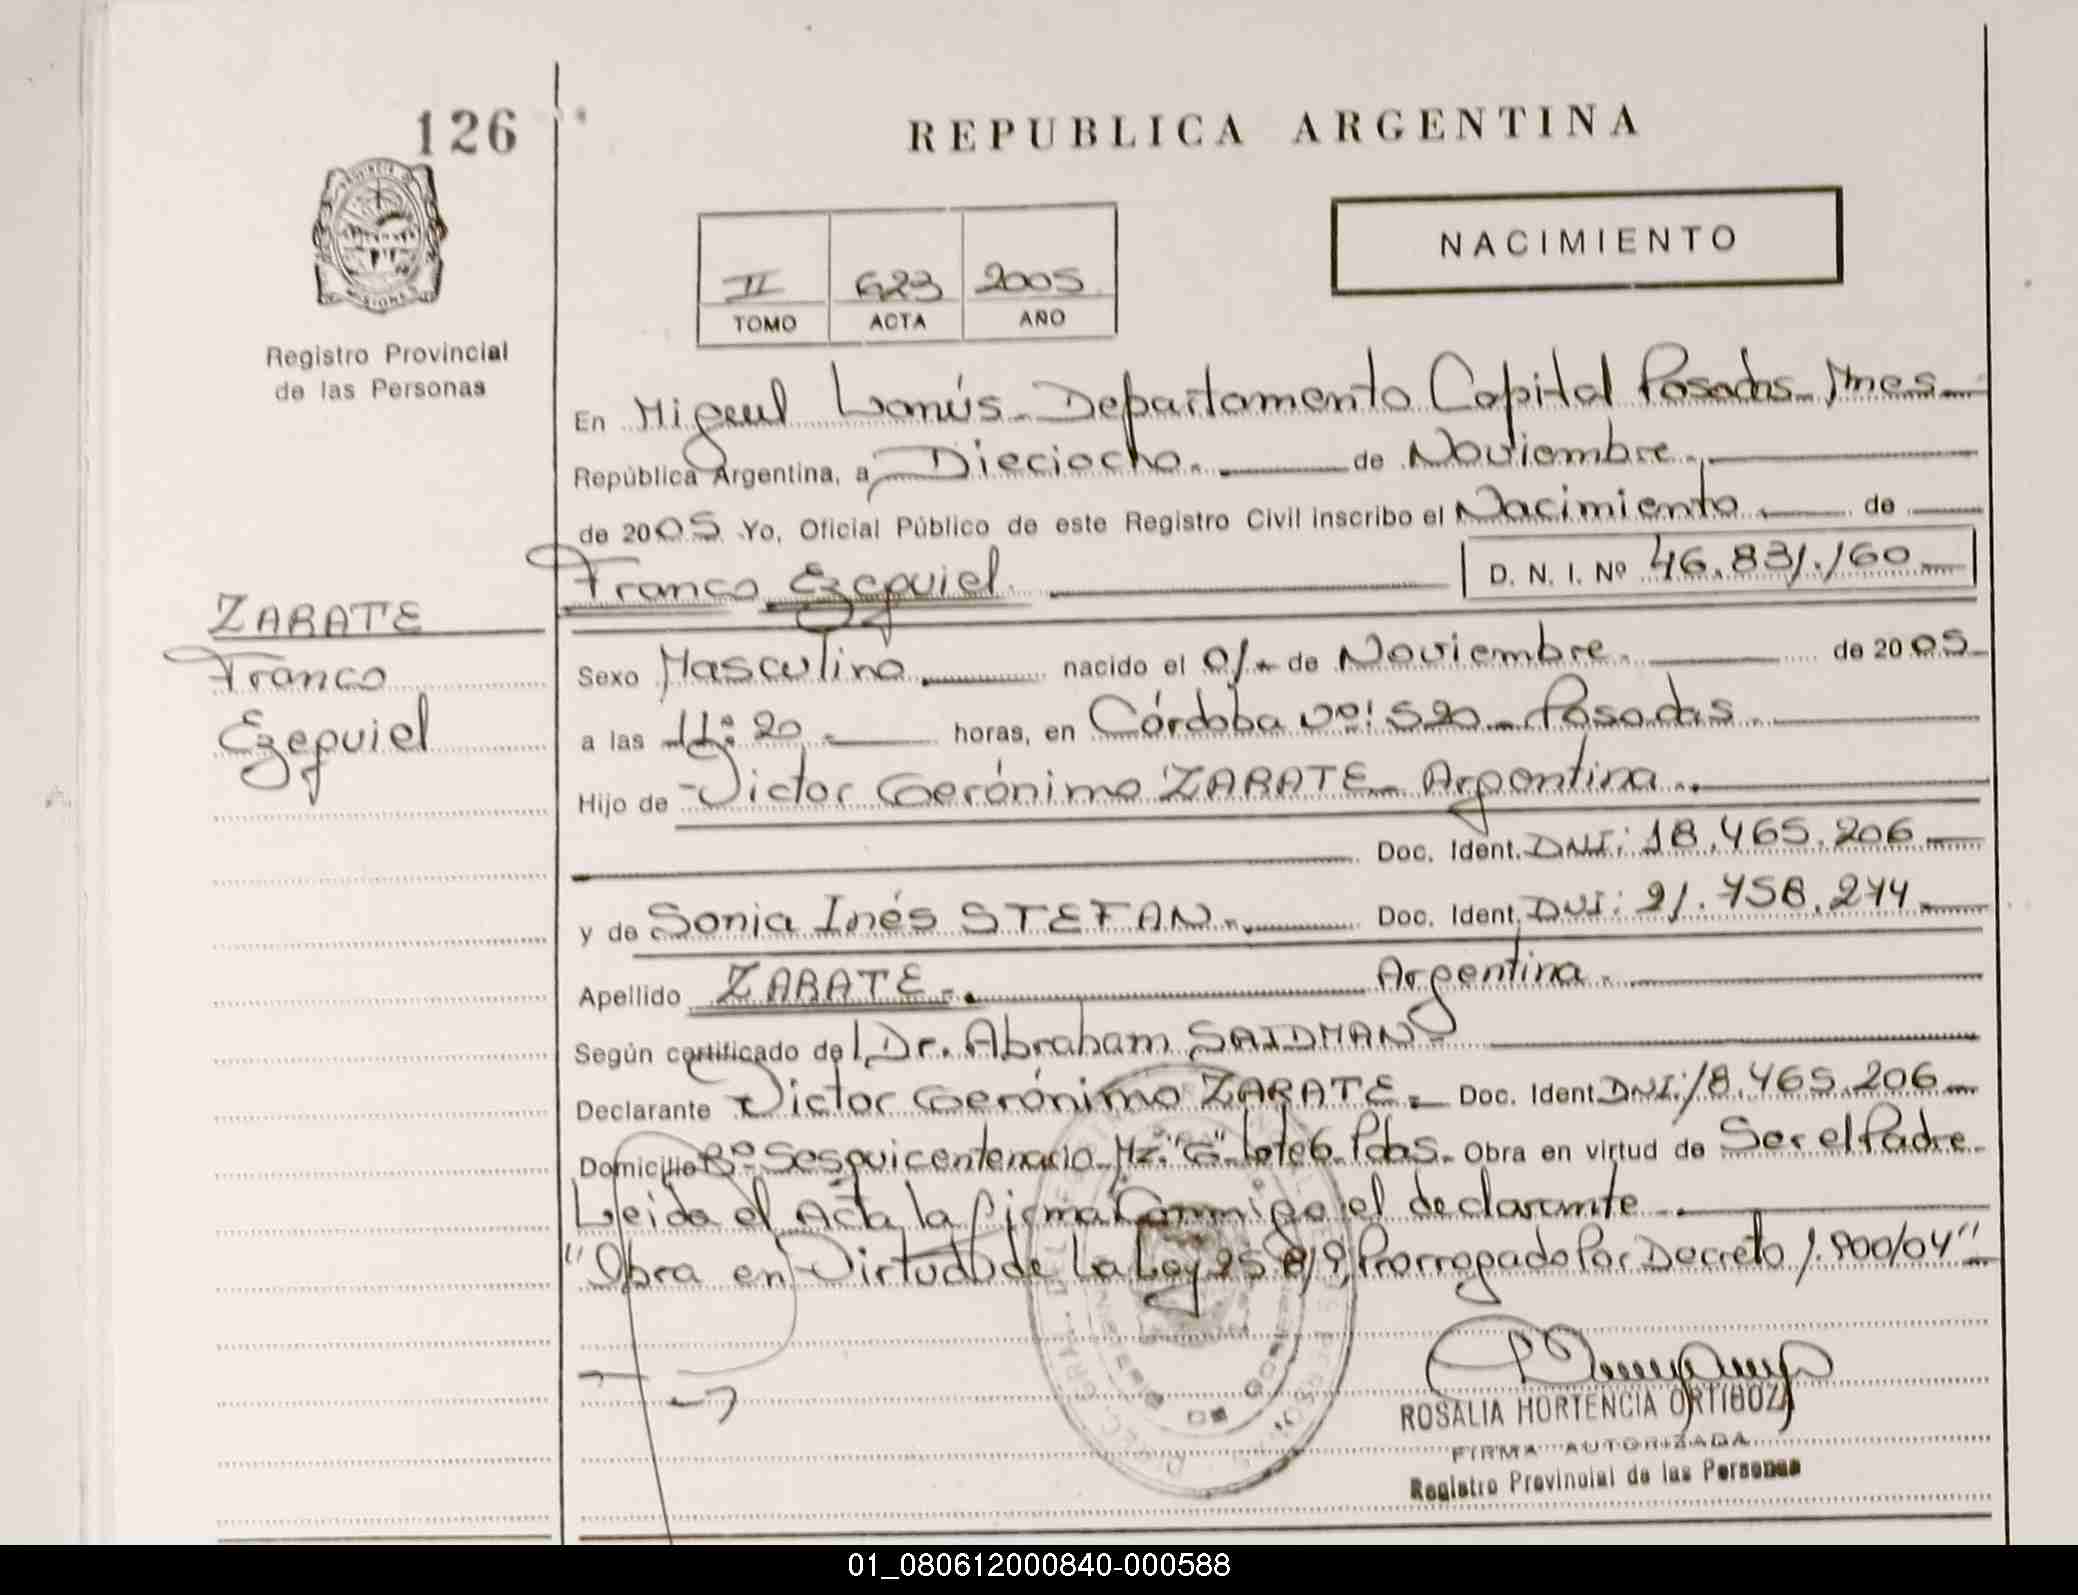 126
REPUBLICA ARGENTINA
NACIMIENTO
II 623 2005
TOMO ACTA AÑO
Registro Provincial
de las Personas
En Miguel Lanús - Departamento Capital Posadas - Mnes -
República Argentina, a Dieciocho. de Noviembre.
de 2005 Yo, Oficial Público de este Registro Civil inscribo el Nacimiento de
Franco Ezequiel. D. N. I. Nº 46.831.160
ZARATE
Franco
Ezequiel
Sexo Masculino nacido el 01 de Noviembre. de 2005
a las 11:20 horas, en Córdoba Nº: 520 - Posadas.
Hijo de Victor Gerónimo ZARATE - Argentina.
Doc. Ident. DNI: 18.465.206
y de Sonia Inés STEFAN. Doc. Ident. DNI: 21.758.274
Apellido ZARATE. Argentina.
Según certificado del Dr. Abraham SAIDMAN
Declarante Victor Gerónimo ZARATE. Doc. Ident DNI: 18.465.206
Domicilio Bº Sesquicentenario Mz. "G" lote 6 Pdas. Obra en virtud de Ser el Padre
Leida el Acta la firma Conmigo el declarante
"Obra en Virtud de La Ley 25.819, Prorrogado Por Decreto 1.900/04"
ROSALIA HORTENCIA ORTIGOZA
FIRMA AUTORIZADA
Registro Provincial de las Personas
01_080612000840-000588